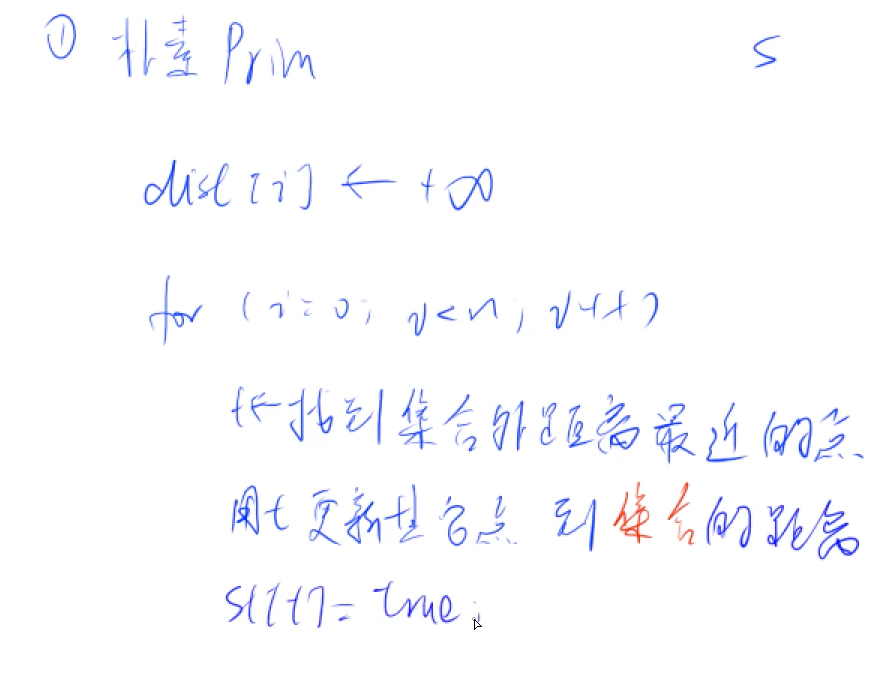 ① 朴素 Prim S
dist[i] ← +∞
for (i=0; i<n; i++)
t←找到集合外距离最近的点
用t更新其它点 到集合的距离
st[t]=true;